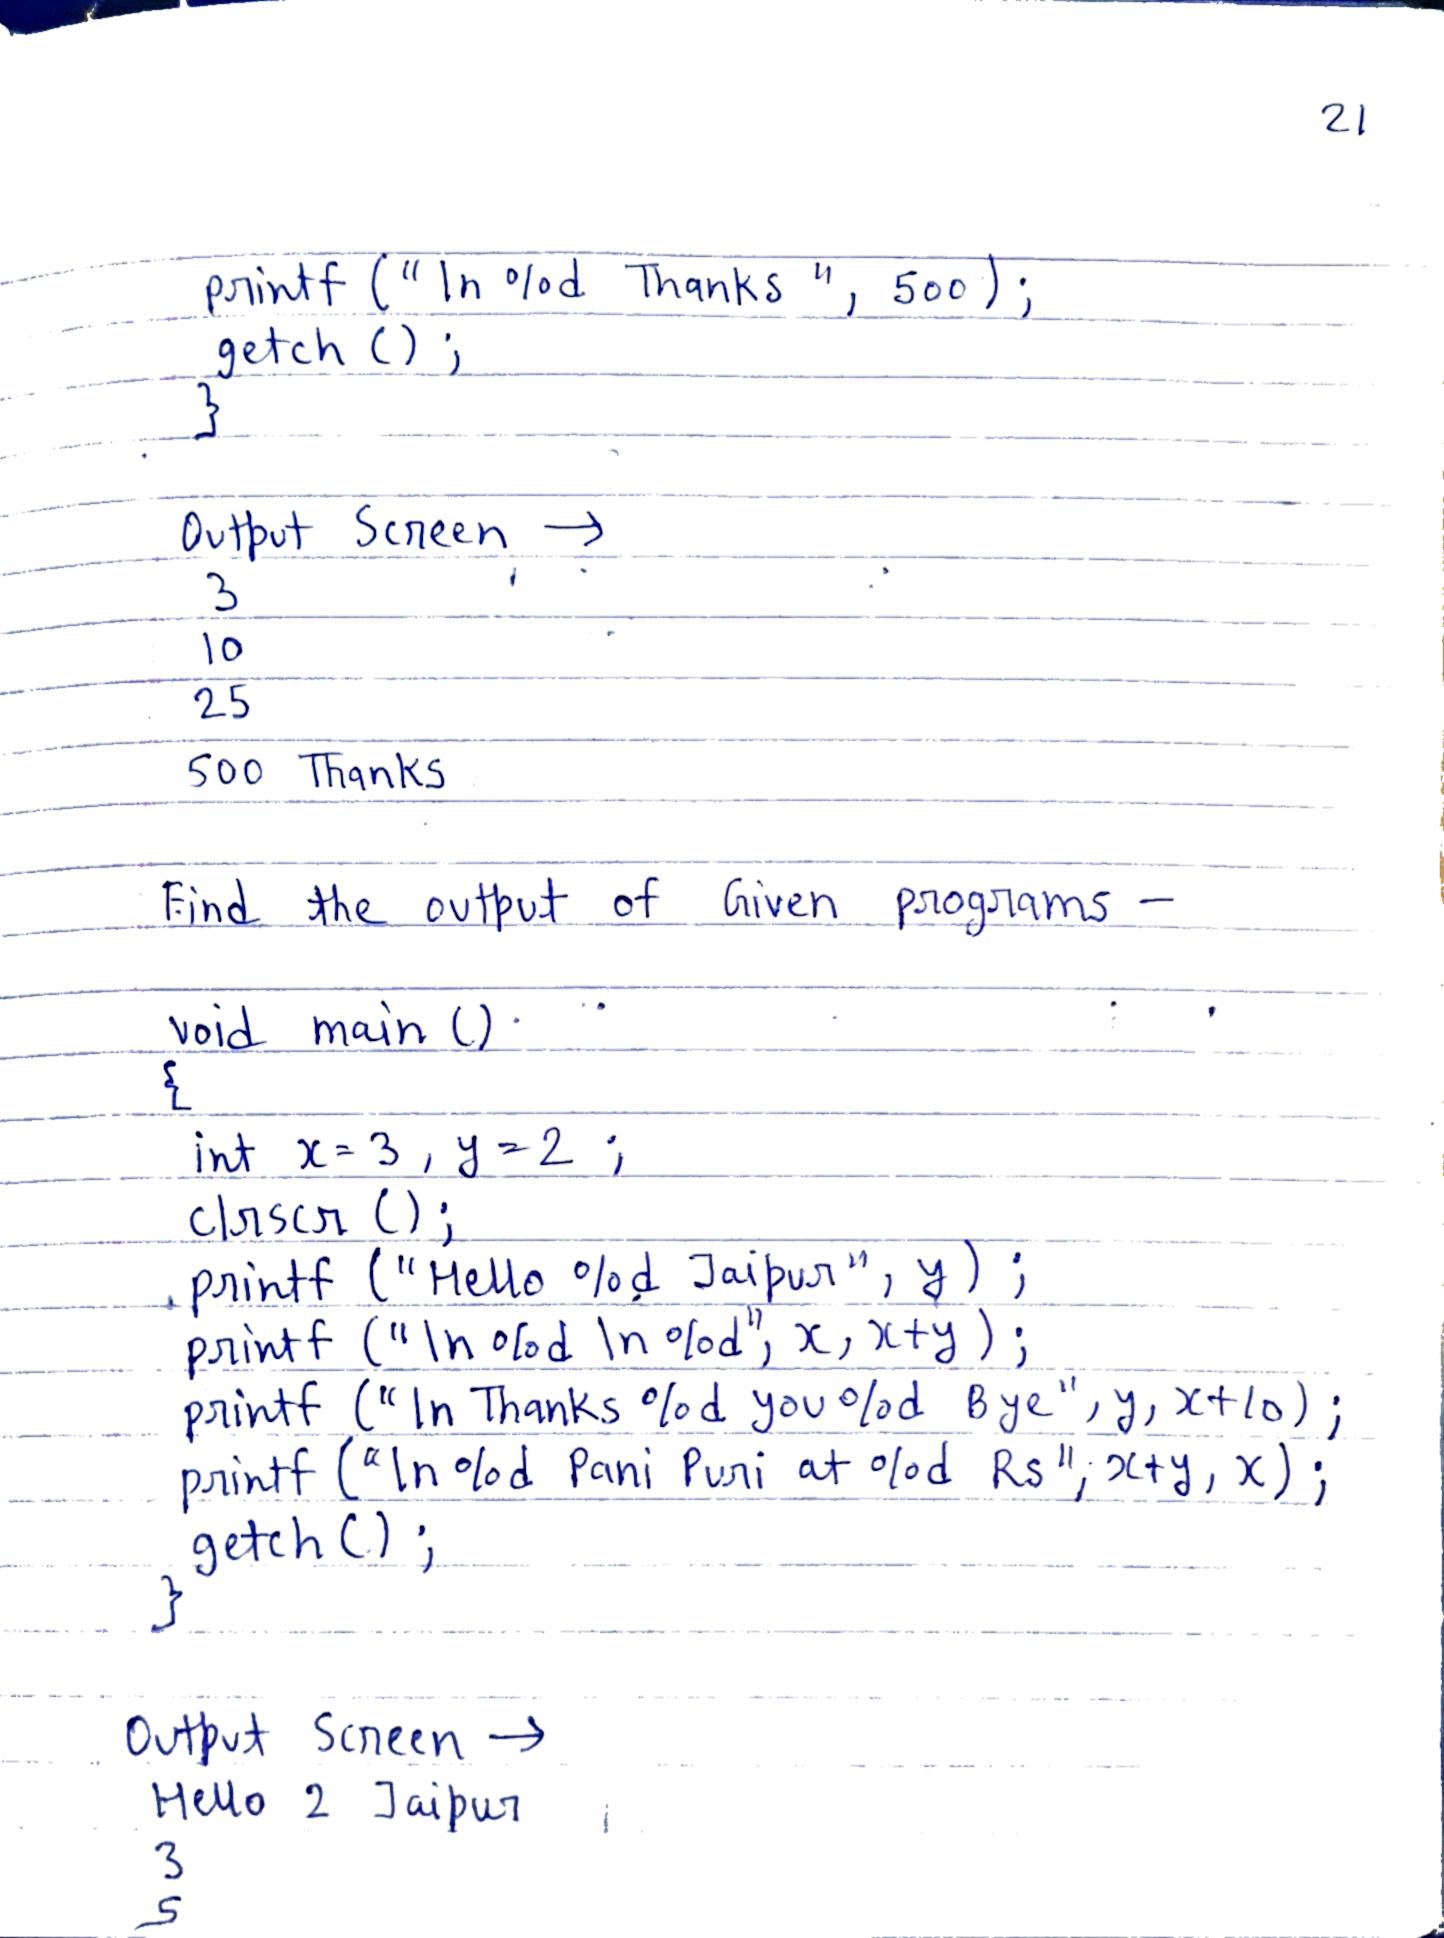 21
printf ("\n %d Thanks ", 500);
getch ();
}
Output Screen →
3
10
25
500 Thanks
Find the output of Given programs -
void main ()
{
int x=3, y=2 ;
clrscr ();
printf ("Hello %d Jaipur", y) ;
printf ("\n %d \n %d", x, x+y) ;
printf ("\n Thanks %d you %d Bye", y, x+10) ;
printf ("\n %d Pani Puri at %d Rs", x+y, x) ;
getch () ;
}
Output Screen →
Hello 2 Jaipur
3
5